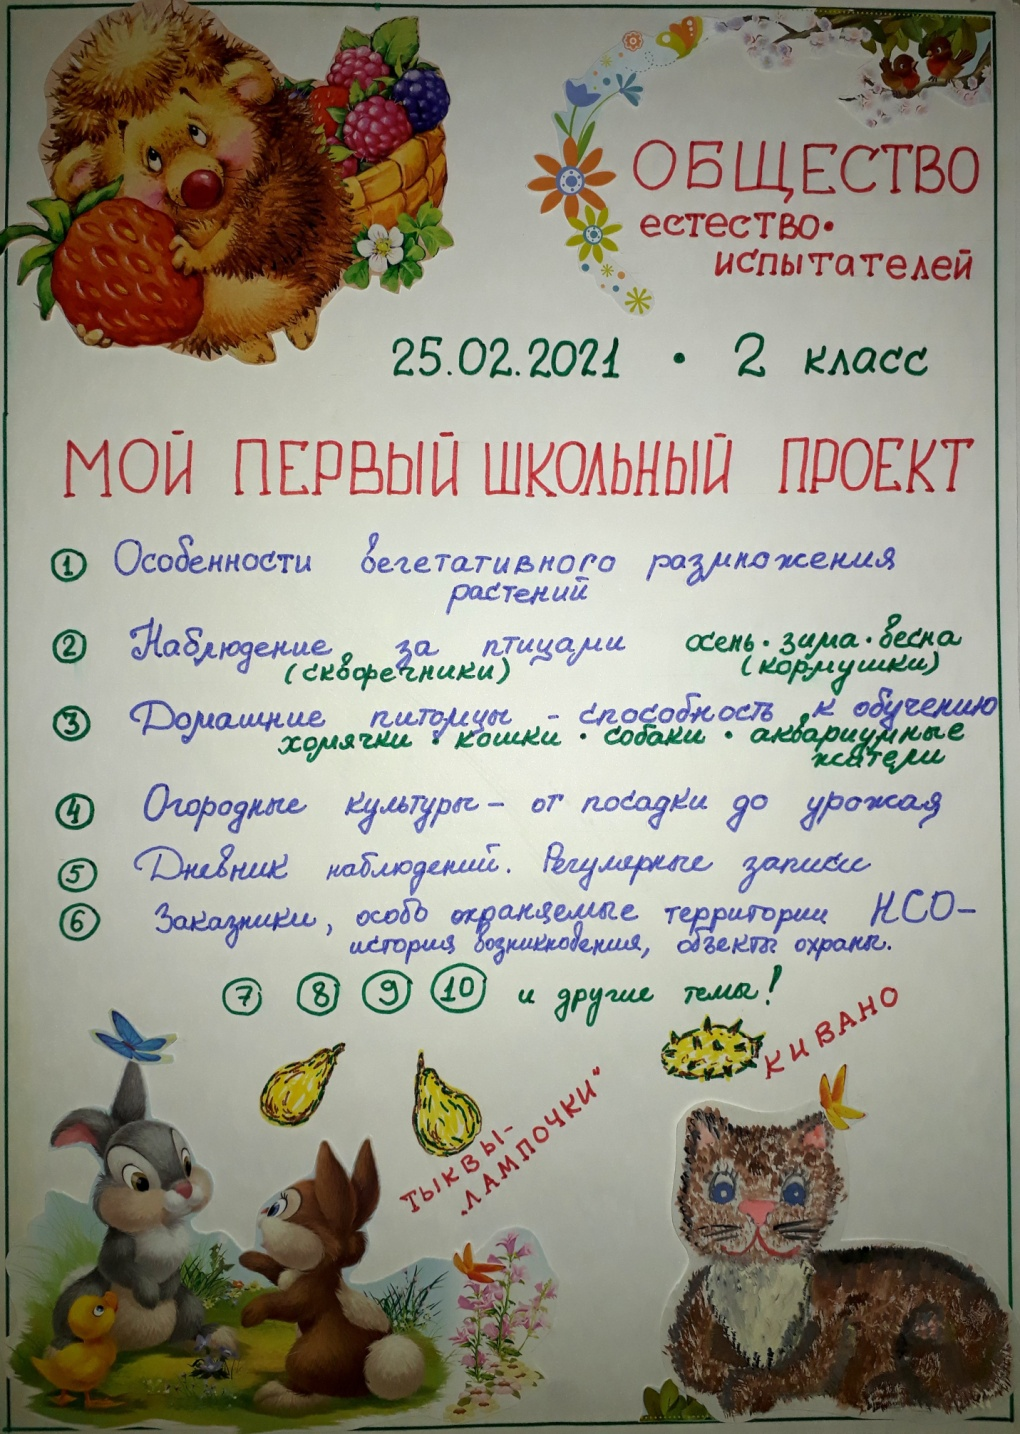 ОБЩЕСТВО
естество•
испытателей
25.02.2021 • 2 класс
МОЙ ПЕРВЫЙ ШКОЛЬНЫЙ ПРОЕКТ
① Особенности вегетативного размножения
растений
② Наблюдение за птицами осень • зима • весна
(скворечники) (кормушки)
③ Домашние питомцы - способность к обучению
хомячки • кошки • собаки • аквариумные
жители
④ Огородные культуры - от посадки до урожая
⑤ Дневник наблюдений. Регулярные записи
⑥ Заказники, особо охраняемые территории НСО-
история возникновения, объекты охраны.
⑦ ⑧ ⑨ ⑩ и другие темы!
КИВАНО
ТЫКВЫ-
„ЛАМПОЧКИ"